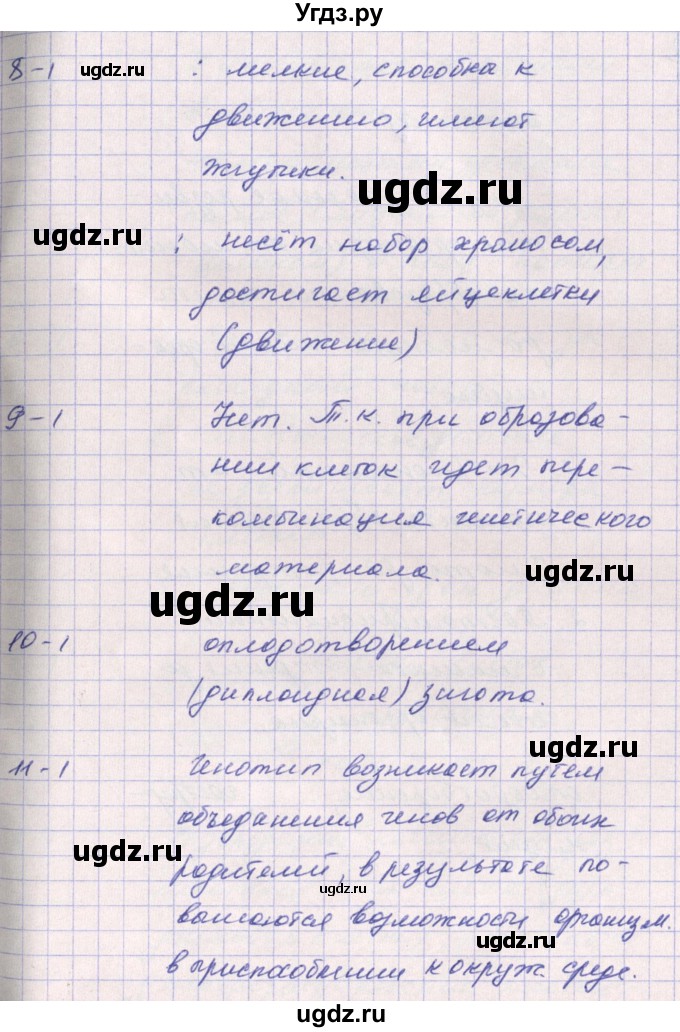 Угдз.ру
8-1 : мелкие, способна к
ugdz.ru
движению, имеют
жгутики.
ugdz.ru
ugdz.ru
: несёт набор хромосом,
достигает яйцеклетки
(движение)
ugdz.ru
9-1 Нет. Т.к. при образова-
нии клеток идет пере-
комбинация генетического
материала.
ugdz.ru
ugdz.ru
10-1 оплодотворением
(диплоидная) зигота.
ugdz.ru
11-1 Генотип возникает путём
объеданения генов от обоих
ugdz.ru
родителей, в результате по-
ugdz.ru
вышаются возможности организм.
ugdz.ru
в приспособлении к окруж. среде.
ugdz.ru